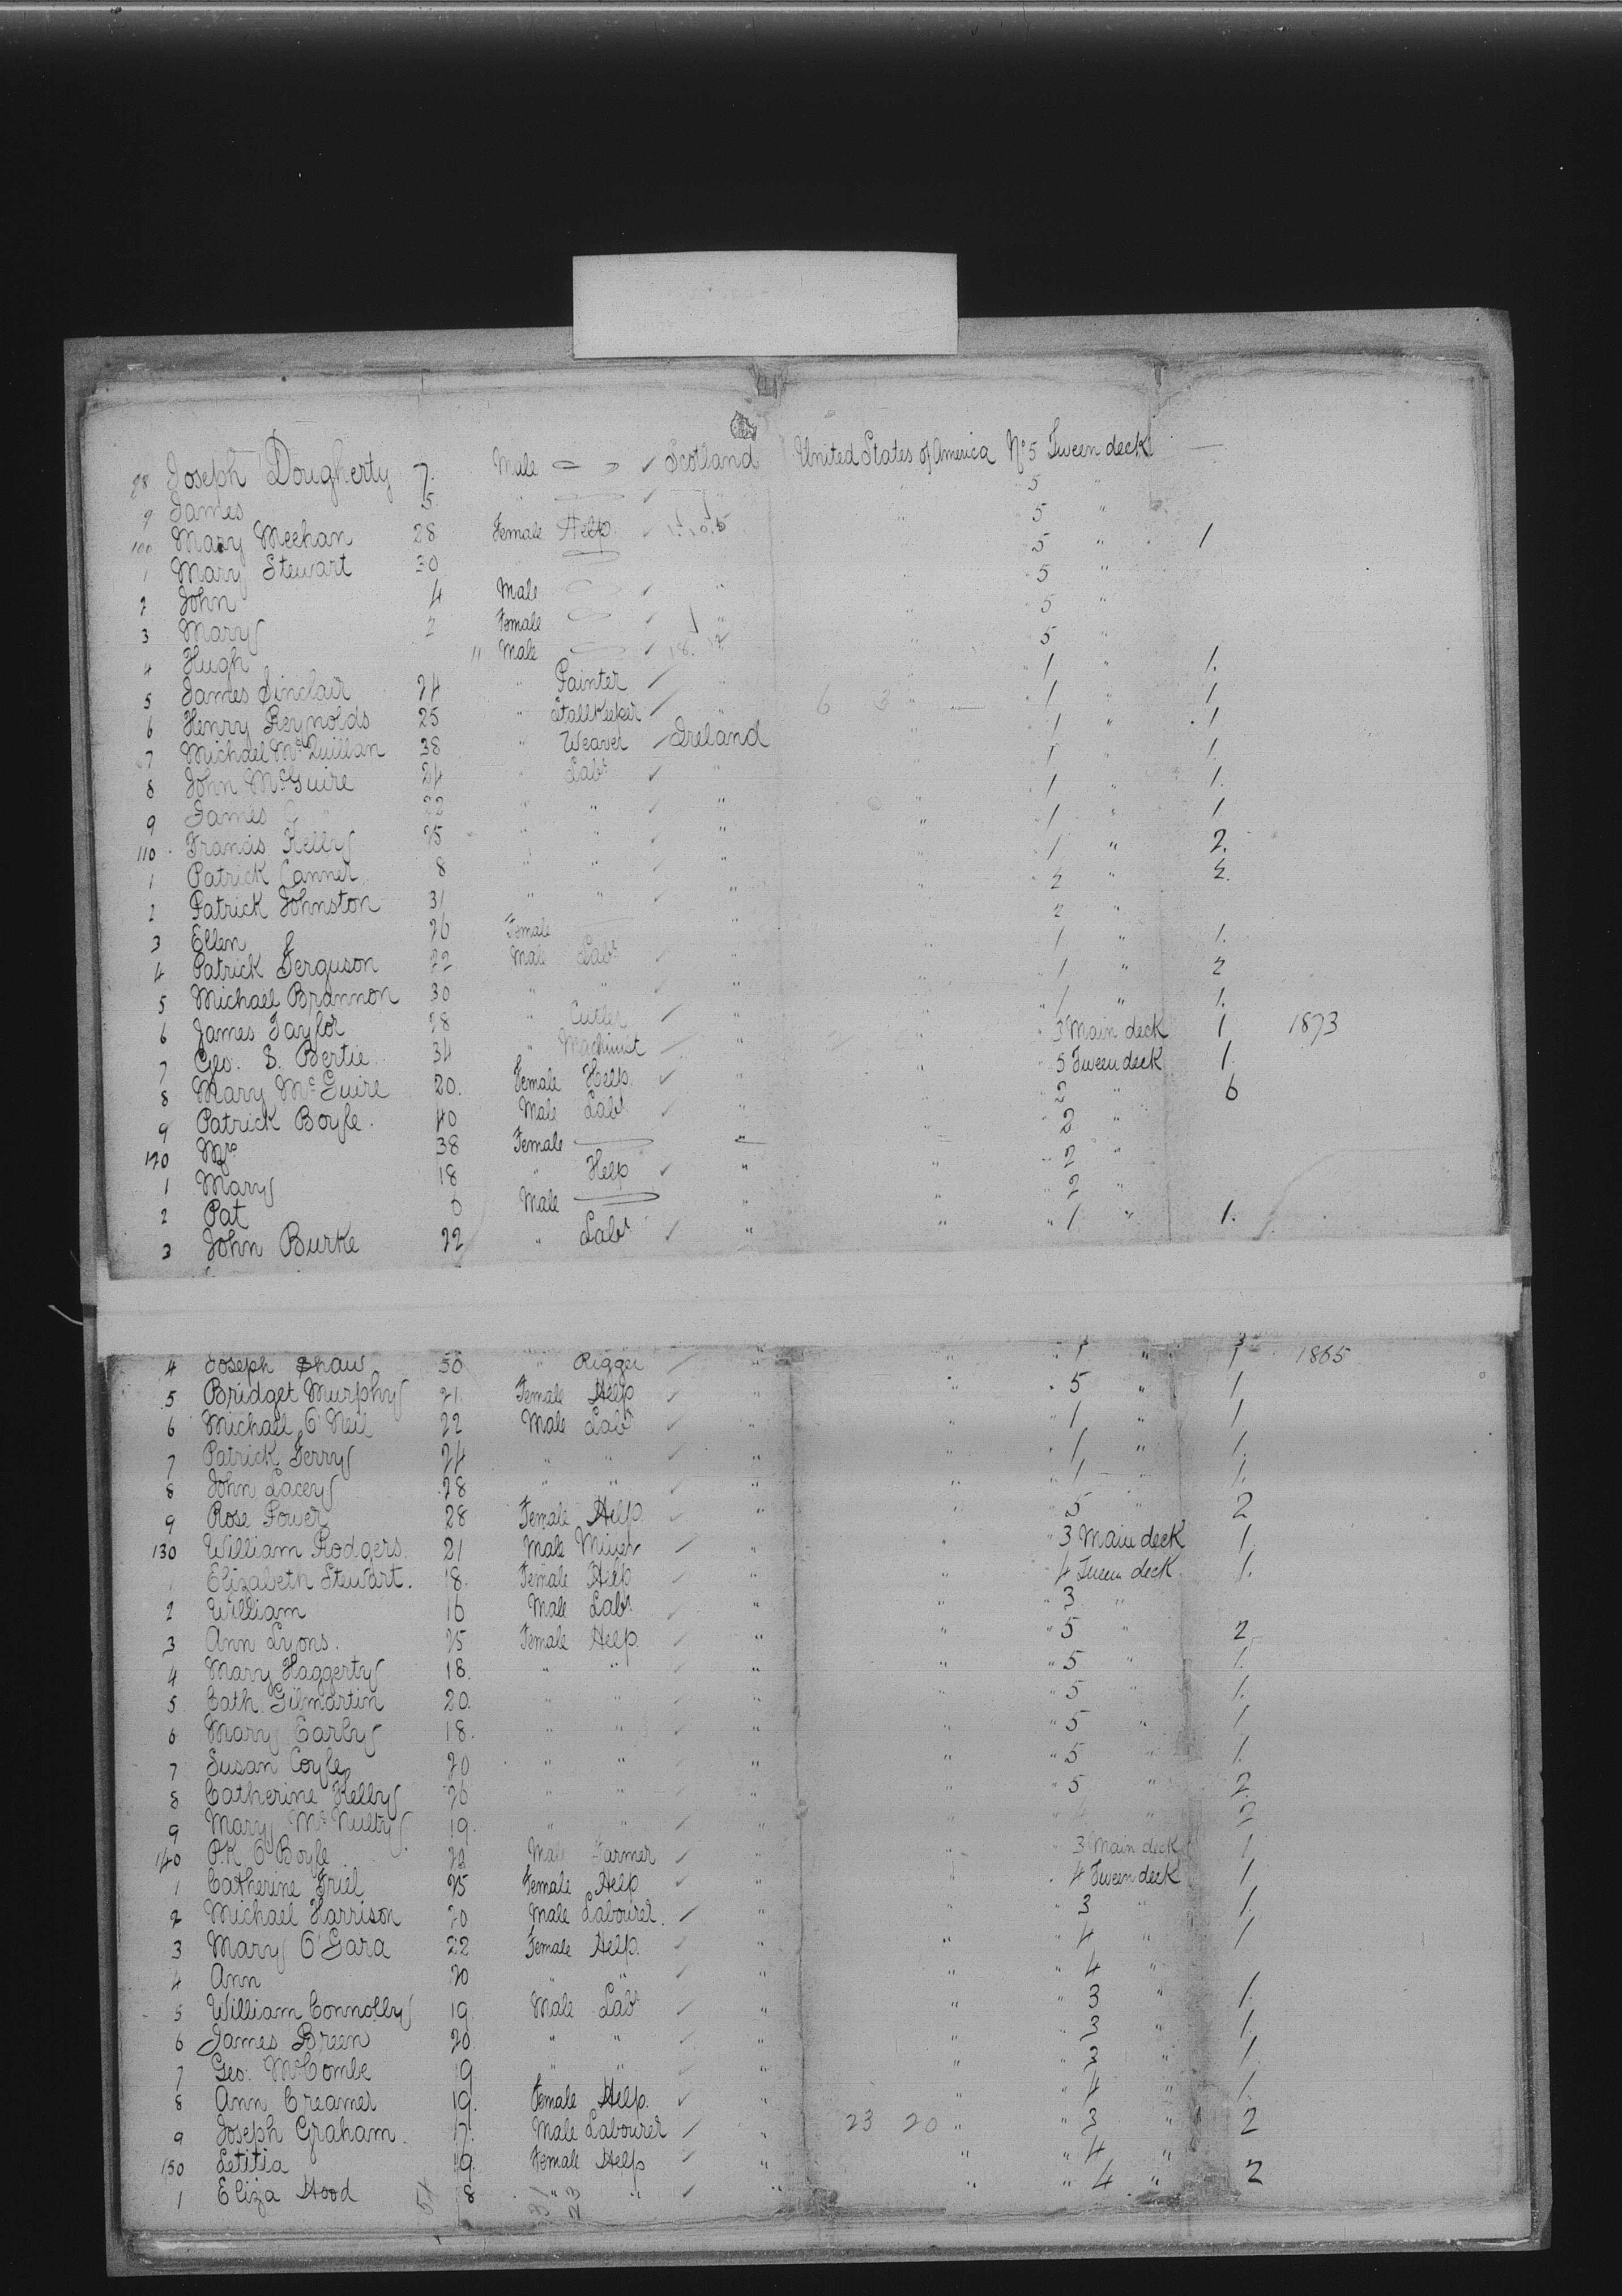 98 Joseph Dougherty 7. Male " " ✓ Scotland United States of America No 5 Tween deck —
9 James 5. " ✓ " " 5 "
100 Mary Meehan 28 Female Help. ✓ " 5 " 1
1 Mary Stewart 30 " 5 "
2 John 4 Male ✓ " 5 "
3 Mary 2 Female ✓ " " 5 "
4 Hugh " Male ✓ 5 "
5 James Sinclair 24 " Painter ✓ " 1 " 1.
6 Henry Reynolds 25 " Stallkeeper ✓ " 6 3 " 1 " 1
7 Michael McQuillan 38 " Weaver ✓ Ireland " 1 " 1
8 John McGuire 24 " Labr ✓ " " 1 " 1.
9 James 22 " " ✓ " 1 " 1.
110 Francis Kelly 25 " " ✓ " " 1 " 1
1 Patrick Canner 8 " " ✓ " " 1 " 2.
2 Patrick Johnston 31 " " ✓ " " 2 " 2.
3 Ellen 26 Female " 2 "
4 Patrick Ferguson 22 Male Labr ✓ " " 1 " 1.
5 Michael Brannon 30 " " ✓ " " 1 " 2
6 James Taylor 28 " Cutler ✓ " " 1 " 1.
7 Geo. S. Bertie 34 " Machinist ✓ " " 3 Main deck 1 1873
8 Mary McGuire 20. Female Help. ✓ " " 5 Tween deck 1.
9 Patrick Boyle. 40 Male Labr ✓ " " 2 " 6
120 Mrs 38 Female " " 2 "
1 Mary 18 " Help ✓ " " 2 "
2 Pat Male " " 2 "
3 John Burke 22 " Labr ✓ " " 1 " 1.
4 Joseph Shaw 50 " Rigger ✓ " " 1 " 1 1865
5 Bridget Murphy 21. Female Help ✓ " " 5 " 1
6 Michael O'Neil 22 Male Labr ✓ " " 1 " 1
7 Patrick Ferry 24 " " ✓ " " 1 " 1.
8 John Lacey 28 " " ✓ " " 1 " 1.
9 Rose Power 28 Female Help. ✓ " " 5 " 2
130 William Rodgers. 21 Male Miner ✓ " " 3 Main deck 1.
1 Elizabeth Stewart. 18. Female Help ✓ " " 4 Tween deck 1.
2 William 16 Male Labr ✓ " " 3 "
3 Ann Lyons. 25 Female Help. ✓ " " 5 " 2
4 Mary Haggerty 18. " " ✓ " " 5 " 1.
5 Cath. Gilmartin 20. " " ✓ " " 5 " 1.
6 Mary Carby 18. " " ✓ " " 5 " 1
7 Susan Coyle 20 " " ✓ " " 5 " 1.
8 Catherine Kelly 26 " " ✓ " " 5 " 2.
9 Mary McNulty 19. " " ✓ " " " 2
140 P.K. O'Boyle Male Farmer ✓ " " 3 Main deck 1
1 Catherine Friel 25 Female Help ✓ " " 4 Tween deck 1
2 Michael Harrison 20 Male Labourer. ✓ " " 3 " 1.
3 Mary O'Gara 22 Female Help. ✓ " " 4 " 1
4 Ann 20 " " ✓ " " 4 "
5 William Connolly 19. Male Labr ✓ " " 3 " 1.
6 James Breen 20 " " ✓ " " 3 " 1.
7 Geo. McCombe 19 " " ✓ " " 3 " 1.
8 Ann Creamer 19. Female Help. ✓ " " 4 " 1.
9 Joseph Graham. 17. Male Labourer ✓ " 23 20 " " 3 " 2
150 Letitia 19. Female Help ✓ " " 4 "
1 Eliza Hood 18 " " ✓ " " 4 " 2